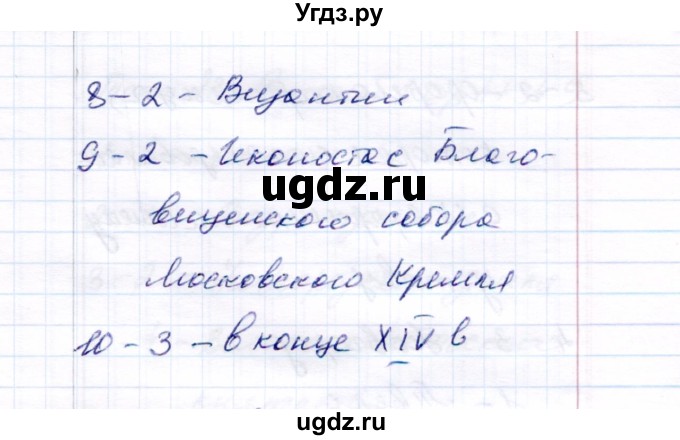 Угдз.ру
8 - 2 - Византии
9 - 2 - Иконостас Благо-
вещенского собора
ugdz.ru
Московского Кремля
10 - 3 - в конце XIV в
ugdz.ru